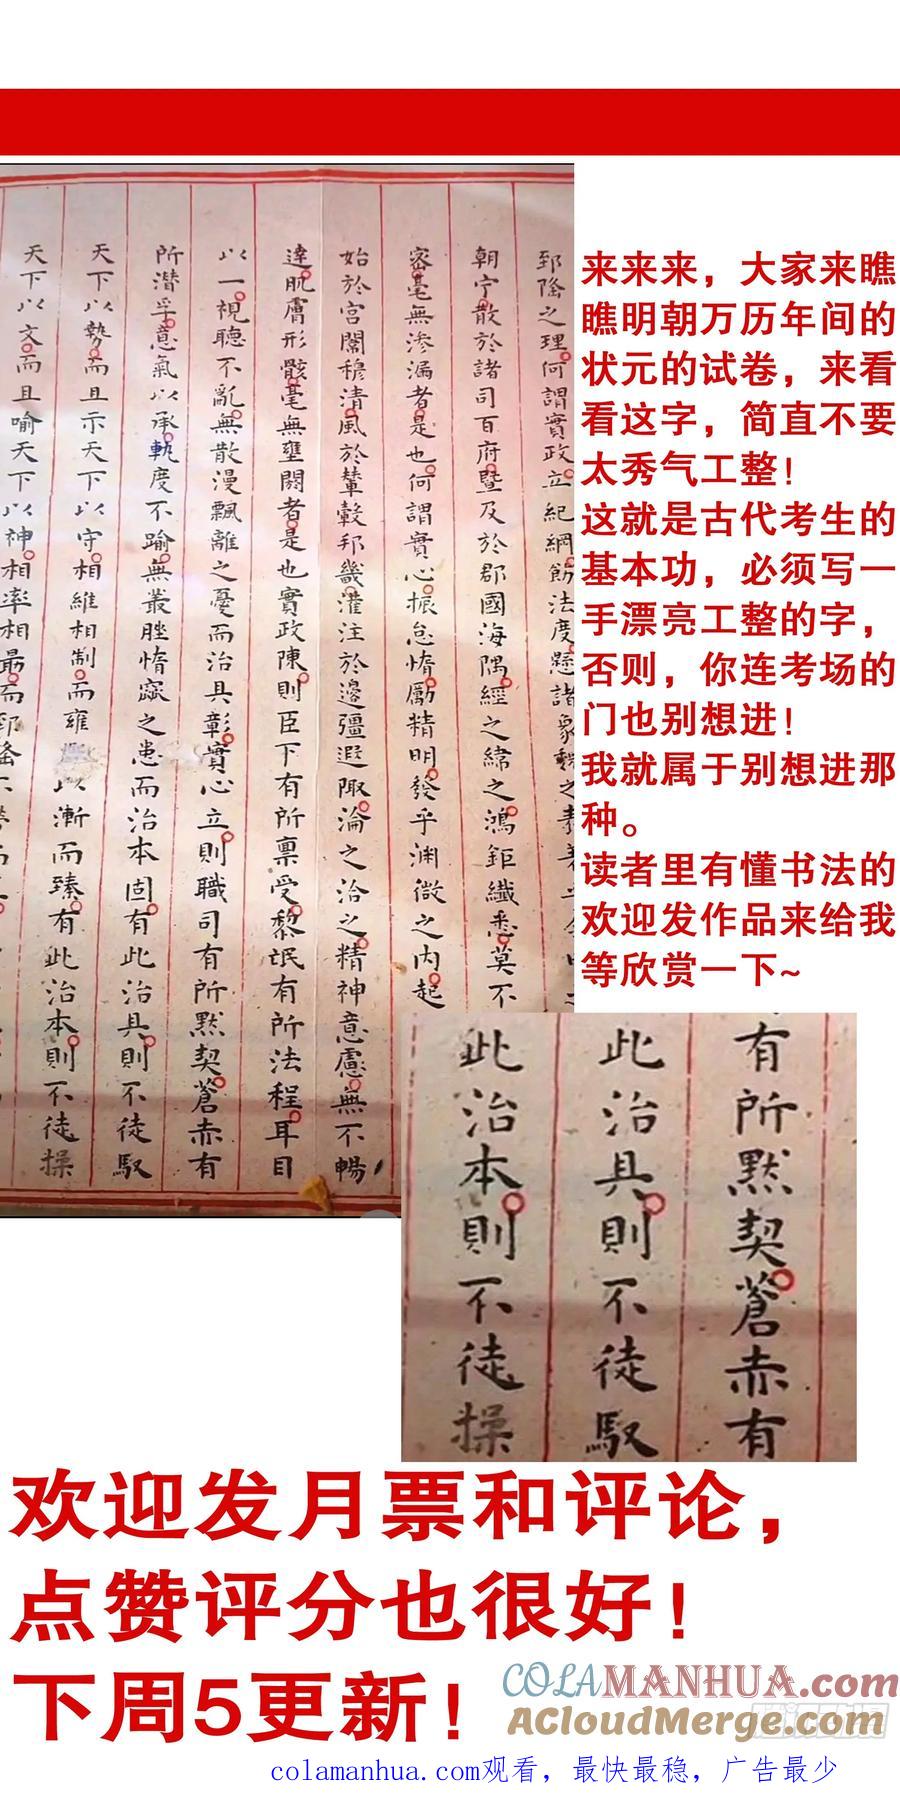 郅隆之理何謂實政立紀綱飭法度懸諸象魏之
朝宁散於諸司百府暨及於郡國海隅經之緯之鴻鉅纖悉莫不
密毫無渗漏者是也何謂實心振怠惰勵精明發乎渊微之内起
始於宮闈穆清風於輦轂邦畿灌注於邊疆遐陬淪之洽之精神意慮無不暢
達肌膚形骸毫無壅閼者是也實政陳則臣下有所稟受黎氓有所法程耳目
以一視聽不亂無散漫飄離之憂而治具彰實心立則職司有所黙契蒼赤有
所潛孚意氣以承軌度不踰無叢脞惰窳之患而治本固有此治具則不徒馭
天下以勢而且示天下以守相維相制而雍以漸而臻有此治本則不徒操
天下以文而且喻天下以神相率相最而郅隆不
来来来，大家来瞧
瞧明朝万历年间的
状元的试卷，来看
看这字，简直不要
太秀气工整!
这就是古代考生的
基本功，必须写一
手漂亮工整的字，
否则，你连考场的
门也别想进!
我就属于别想进那
种。
读者里有懂书法的
欢迎发作品来给我
等欣赏一下~
有所黙契蒼赤有
此治具則不徒馭
此治本則不徒操
欢迎发月票和评论，
点赞评分也很好!
下周5更新!
COLAMANHUA.com
ACloudMerge.com
colamanhua.com观看，最快最稳，广告最少